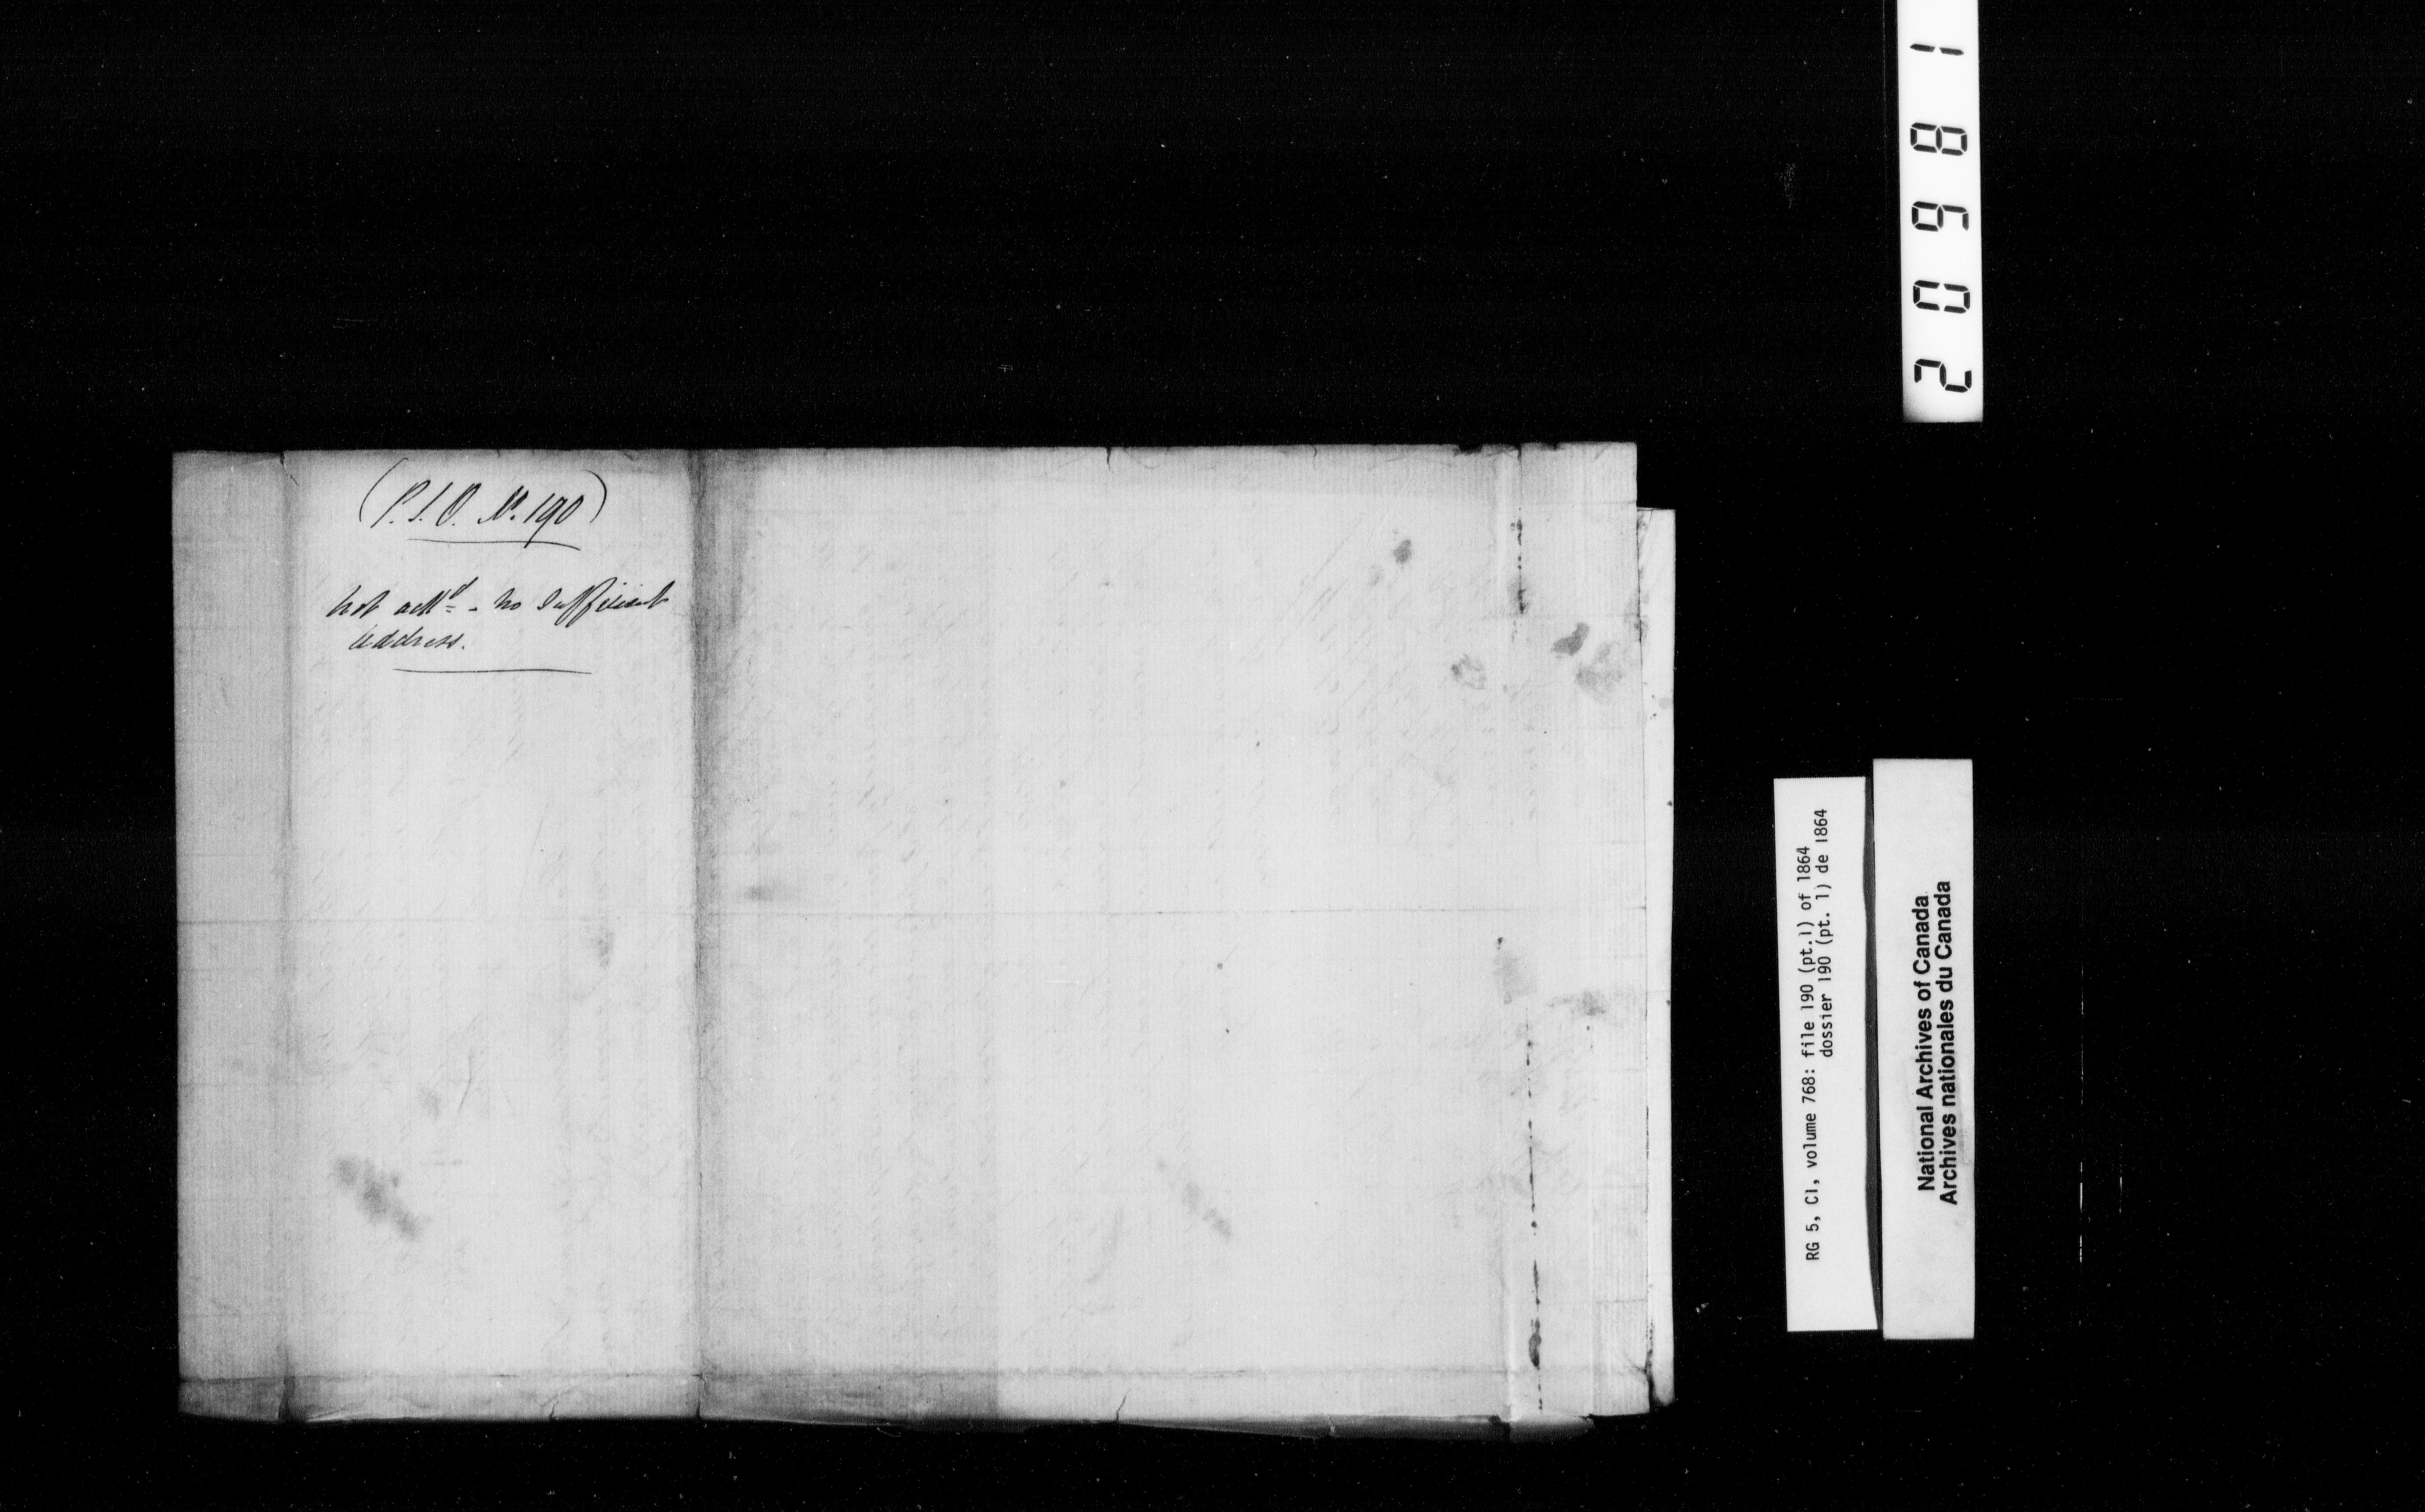 20981
(P.S.O. No. 190)
Not ackd. - no sufficient
address.
RG 5, C1, volume 768: file 190 (pt.1) of 1864
dossier 190 (pt. 1) de 1864
National Archives of Canada
Archives nationales du Canada